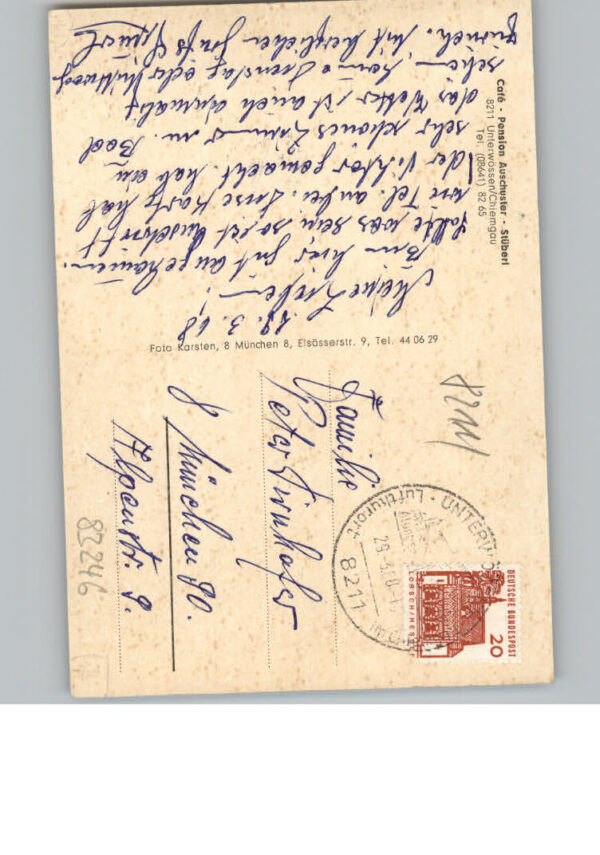 Café - Pension Auschuster - Stüberl
8211 Unterwössen/Chiemgau
Tel. (08641) 82 65
29. 3. 68
Meine Lieben!
Bin hier gut angekommen.
Sollte was sein, so ist
im Tel. anbei. Karte hat
der Viktor gemacht. hab ein
sehr schönes Zimmer m. Bad
das Wetter ist auch
schön. komme Dienstag oder Mittwoch
zurück. Mit herzlichen
Foto Karsten, 8 München 8, Elsässerstr. 9, Tel. 44 06 29
Familie
Peter
8 München 90.
Alpenstr. 9.
8211
83246
UNTERWÖSSEN
Luftkurort
8211
DEUTSCHE BUNDESPOST
20
LORSCH/HESSEN